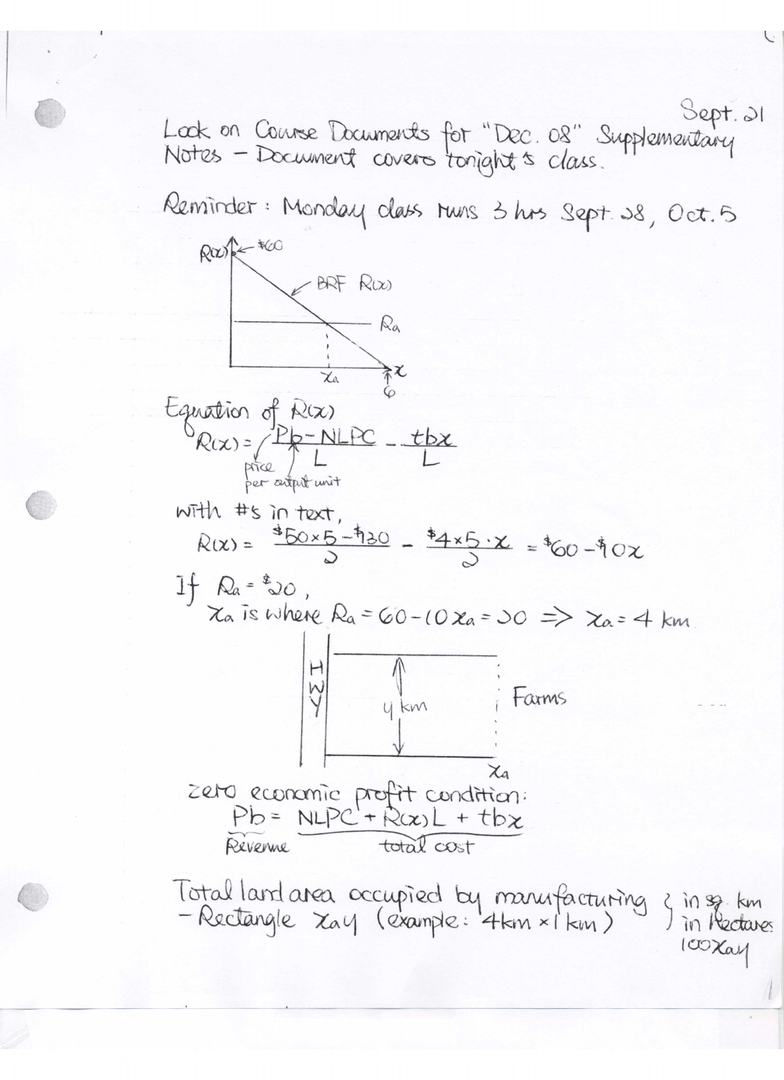 Sept. 21
Look on Course Documents for "Dec. 08" Supplementary
Notes – Document covers tonight's class.
Reminder: Monday class runs 3 hrs Sept. 28, Oct. 5
R(x) $60
BRF R(x)
Ra
xa x
6
Equation of R(x)
R(x) = Pb – NLPC / L – tbx / L
price
per output unit
with #s in text,
R(x) = $50×5 – $130 / 2 – $4×5·x / 2 = $60 – $10x
If Ra = $20,
xa is where Ra = 60 – 10xa = 20 ⇒ xa = 4 km
HWY
y km
Farms
xa
zero economic profit condition:
Pb = NLPC + R(x)L + tbx
Revenue total cost
Total land area occupied by manufacturing } in sq. km
– Rectangle xay (example: 4km × 1km) in Hectares
100xay
1